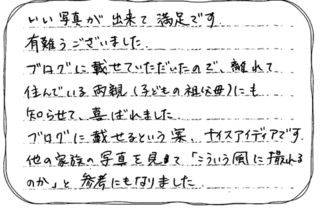 いい写真が出来て満足です
有難うございました.
ブログに載せていただいたので、離れて
住んでいる両親(子どもの祖父母)にも
知らせて、喜ばれました.
ブログに載せるという案、ナイスアイディアです.
他の家族の写真を見て「こういう風に撮れる
のか」と参考にもなりました